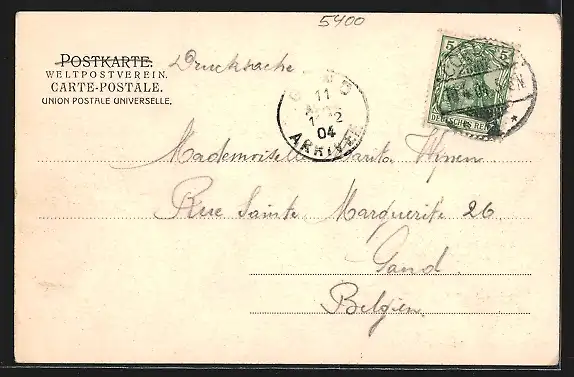 5400
POSTKARTE.
WELTPOSTVEREIN.
CARTE-POSTALE.
UNION POSTALE UNIVERSELLE.
Drucksache
5 5
DEUTSCHES REICH
GAND
11
1 2
04
ARRIVEE
Mademoiselle Marita
Rue Sainte Marguerite 26
Gand.
Belgien.